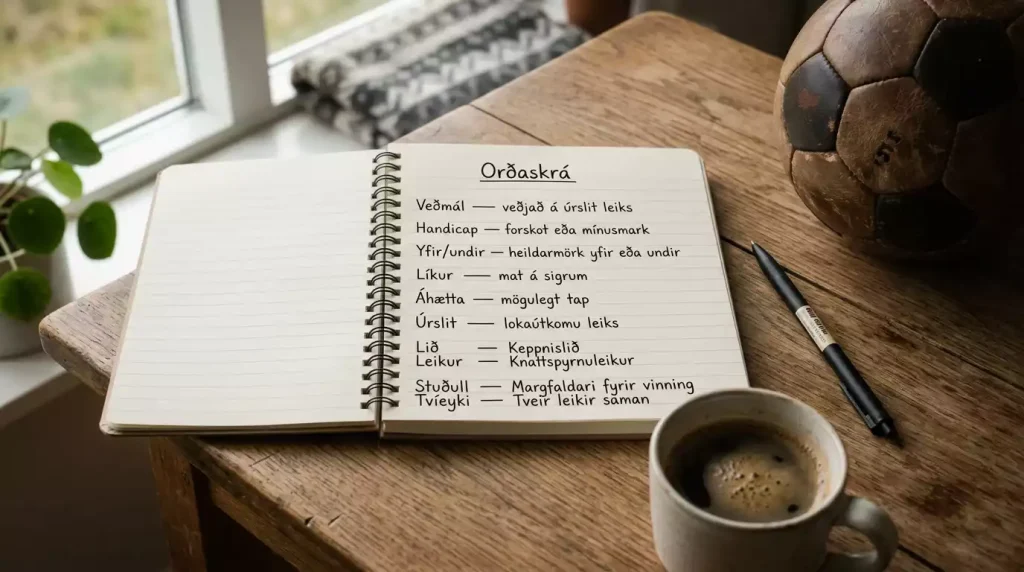 Orðaskrá
Veðmál — veðjað á úrslit leiks
Handicap — forskot eða mínusmark
Yfir/undir — heildarmörk yfir eða undir
Líkur — mat á sigrum
Áhætta — mögulegt tap
Úrslit — lokaútkomu leiks
Lið — Keppnislið
Leikur — Knattspyrnuleikur
Stuðull — Margfaldari fyrir vinning
Tvíeyki — Tveir leikir saman